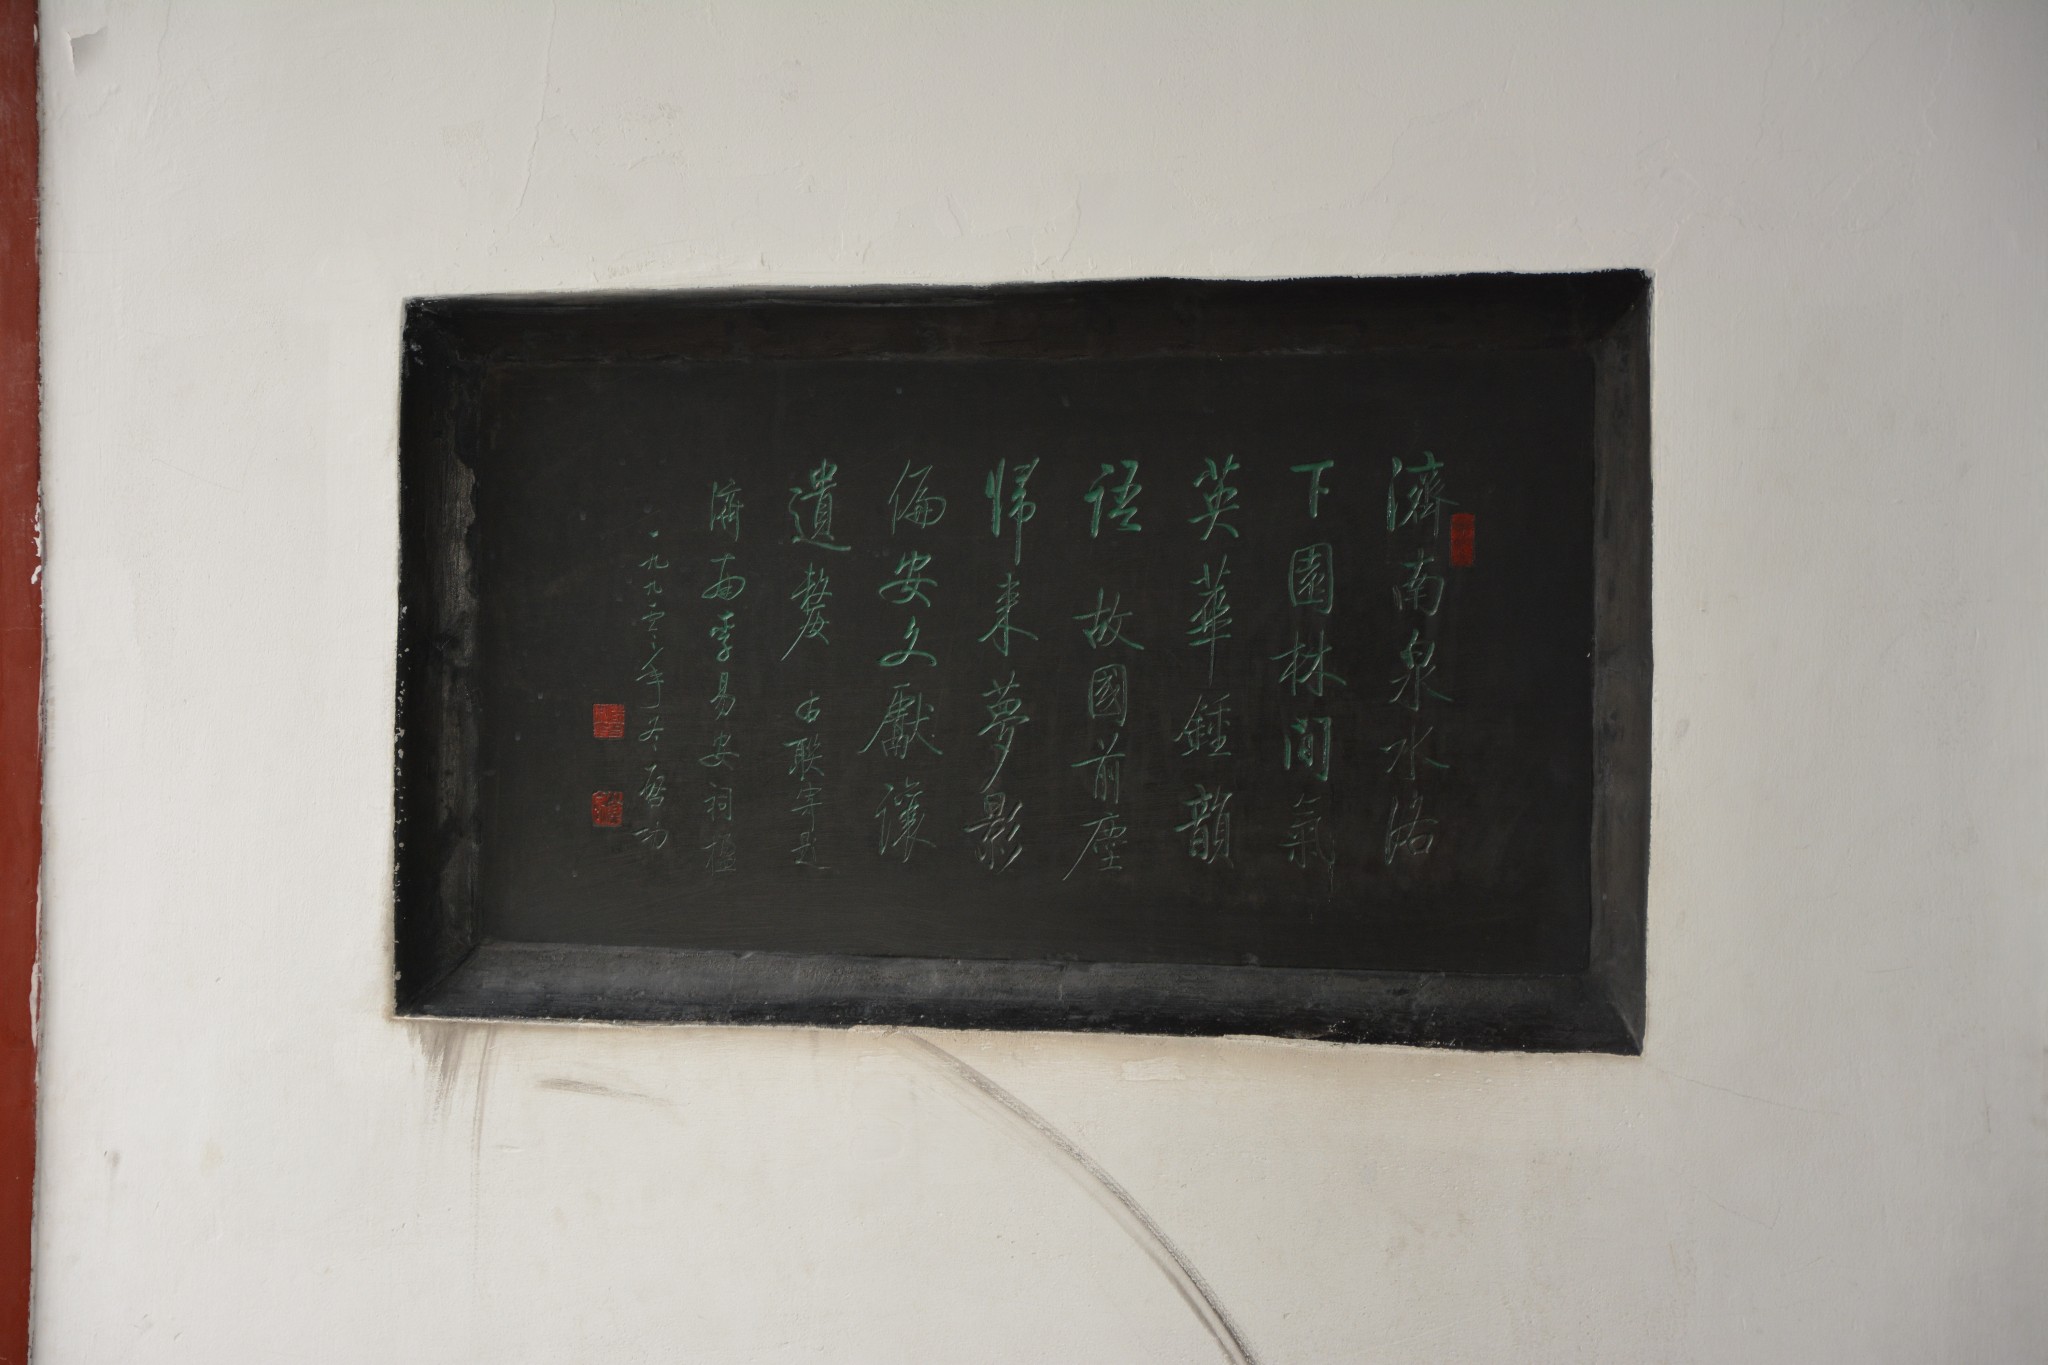 濟南泉水洛
下園林間氣
英華鍾韻
語 故國前塵
歸来夢影
偏安文獻讓
遺嫠 右聯寄題
濟南李易安祠楹
一九九〇年冬 啓功